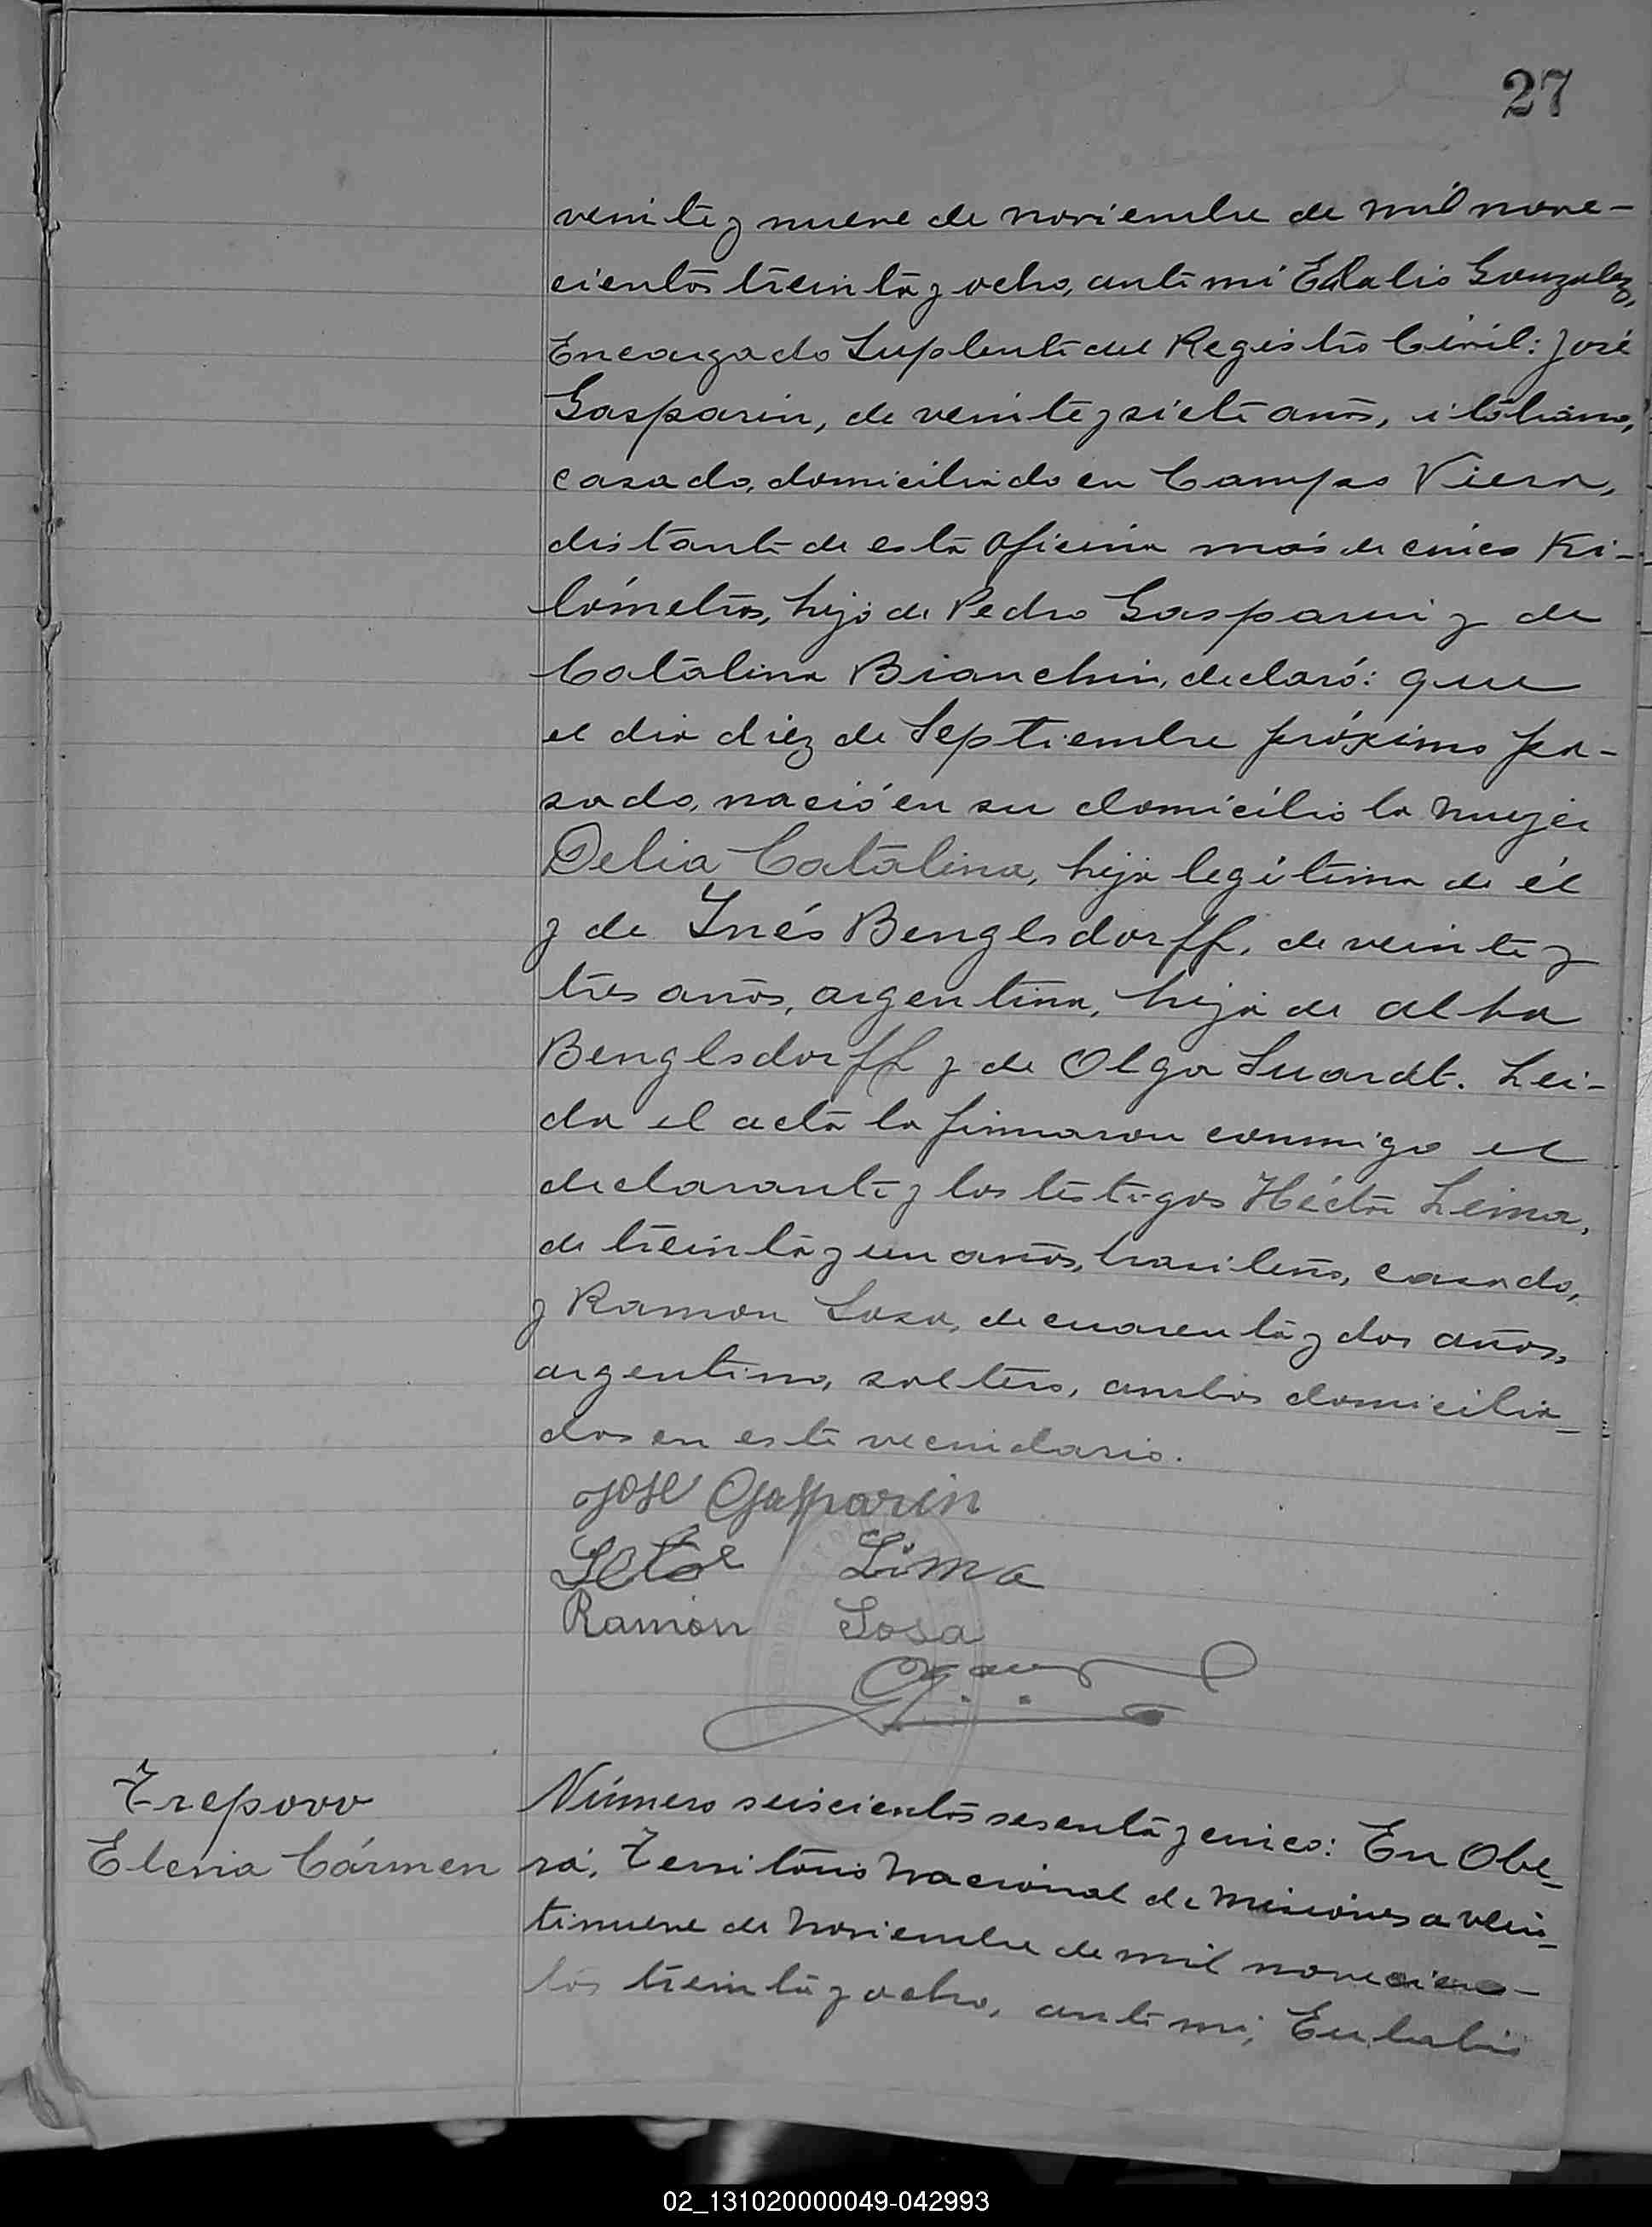 27
veinte y nueve de noviembre de mil nove-
cientos treinta y ocho, ante mi Eulalio Gonzalez,
Encargado Suplente del Registro Civil: José
Gasparin, de veinte y siete años, italiano,
casado, domiciliado en Campo Viera,
distante de esta oficina más de cinco Ki-
lómetros, hijo de Pedro Gasparin y de
Catalina Bianchin, declaró: que
el dia diez de Septiembre próximo pa-
sado, nació en su domicilio la mujer
Delia Catalina, hija legítima de él
y de Inés Benglsdorff, de veinte y
tres años, argentina, hija de
Benglsdorff y de Olga Suardt. Lei-
da el acta la firmaron conmigo el
declarante y los testigos Héctor Leima,
de treinta y un años, brasileño, casado,
y Ramon Sosa, de cuarenta y dos años,
argentino, soltero, ambos domicilia-
dos en este vecindario.
José Gasparin
Lima
Ramón Sosa
Treporo
Elena Cármen
Número seiscientos sesenta y cinco: En Obe-
rá, Territorio Nacional de Misiones a vein-
tinueve de Noviembre de mil novecien-
tos treinta y ocho, ante mi, Eulalio
02_131020000049-042993